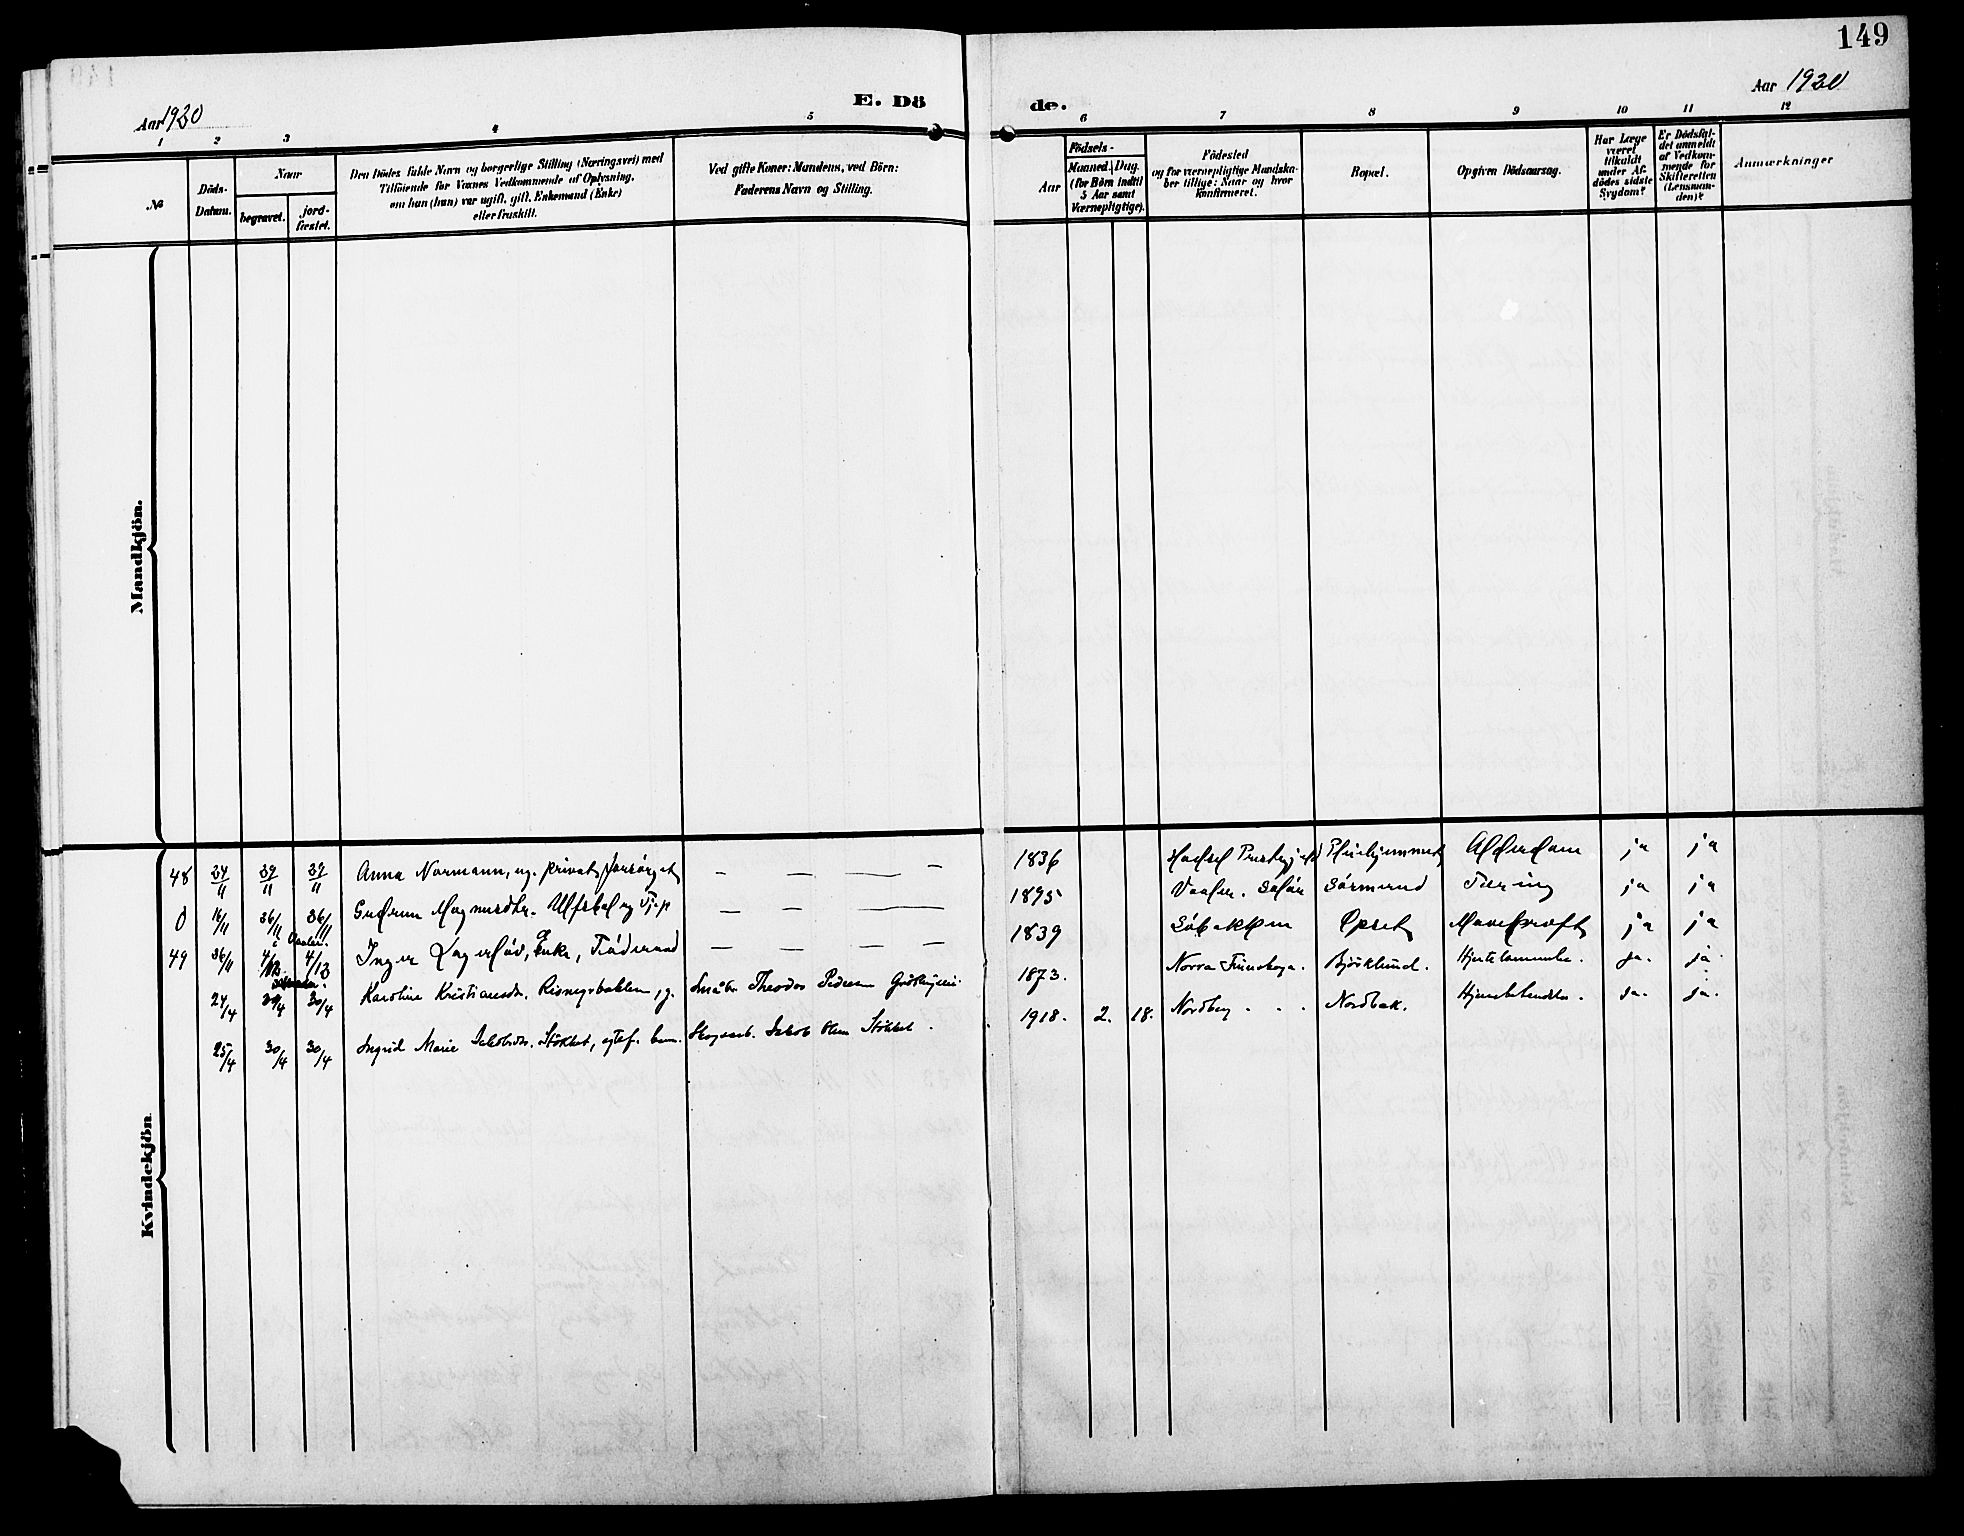 149
Aar 1920
E. Dö
de.
Aar 1920
1 2 3 4 5 6 7 8 9 10 11 12
№
Döds-
Datum.
Naar
begravet.
jord-
fæstet.
Den Dödes fulde Navn og borgerlige Stilling (Næringsvei) med
Tilföiende for Voxnes Vedkommende af Oplysning,
om han (hun) var ugift, gift, Enkemand (Enke)
eller fraskilt.
Ved gifte Koner: Mandens, ved Börn:
Faderens Navn og Stilling.
Födsels-
Aar
Maaned. Dag.
(for Börn indtil
5 Aar samt
Værnepligtige).
Födested
og for værnepligtige Mandska-
ber tillige: Naar og hvor
konfirmeret.
Bopæl.
Opgiven Dödsaarsag.
Har Læge
været
tilkaldt
under Af-
dödes sidste
Sygdom?
Er Dödsfal-
det anmeldt
af Vedkom-
mende for
Skifteretten
(Lensman-
den)?
Anmærkninger
Mandkjön.
Kvindekjön
48 24/11 29/11 29/11 Anna Normann, ug. privat forsørget — — — — 1836 Pleiehjemmet Alderdom ja ja
0 16/11 26/11 26/11 Gudrun Magnusdtr. — — — 1895 Vaaler. Solør Sörmund Tæring ja ja
49 26/11 4/12 4/12 Inger Lagerløv, Enke, — — — — 1839 Sóbakken Opset Mavekræft ja ja
24/4 30/4 Karoline Kristiansdr. g. Småbr. Theodor Pedersen 1873. Norra Finnskoga. Bjørklund. Hjertelammelse. ja. ja.
25/4 30/4 30/4 Ingrid Marie Jakobsdr. Stókket, egtef. barn. Skogsarb. Jakob Olsen Stókket. 1918. 2. 18. Nordberg . . . Nordbak. Hjernebetendelse. ja. ja.